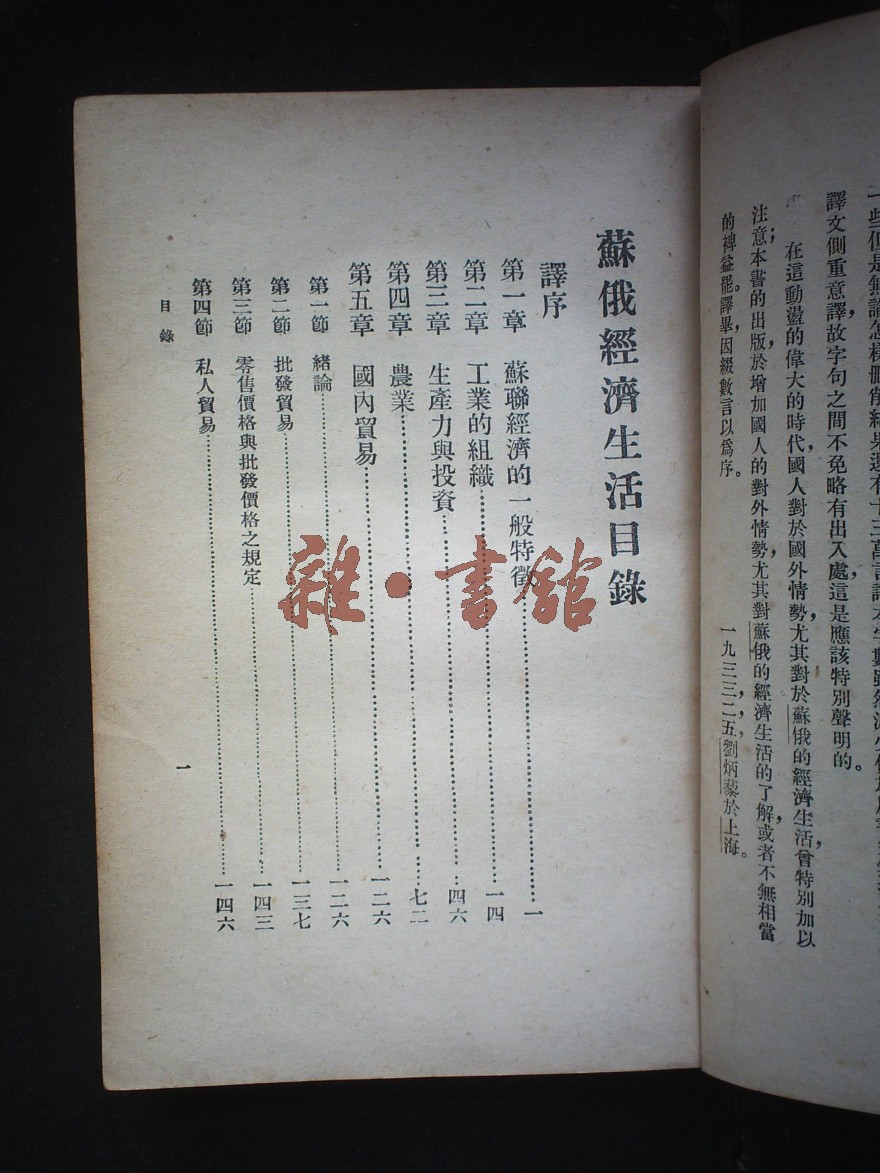 譯文側重意譯,故字句之間不免略有出入處,這是應該特別聲明的。
在這動盪的偉大的時代,國人對於國外情勢,尤其對於蘇俄的經濟生活,曾特別加以
注意;本書的出版,於增加國人的對外情勢,尤其對蘇俄的經濟生活的了解,或者不無相當
的裨益罷。譯畢,因綴數言以爲序。
一九三三,二,五,劉炳藜於上海。
蘇俄經濟生活目錄
譯序
第一章 蘇聯經濟的一般特徵……一
第二章 工業的組織……一四
第三章 生產力與投資……四六
第四章 農業……七二
第五章 國內貿易……一二六
第一節 緒論……一二六
第二節 批發貿易……一三七
第三節 零售價格與批發價格之規定……一四三
第四節 私人貿易……一四六
目錄
一
雜·書館